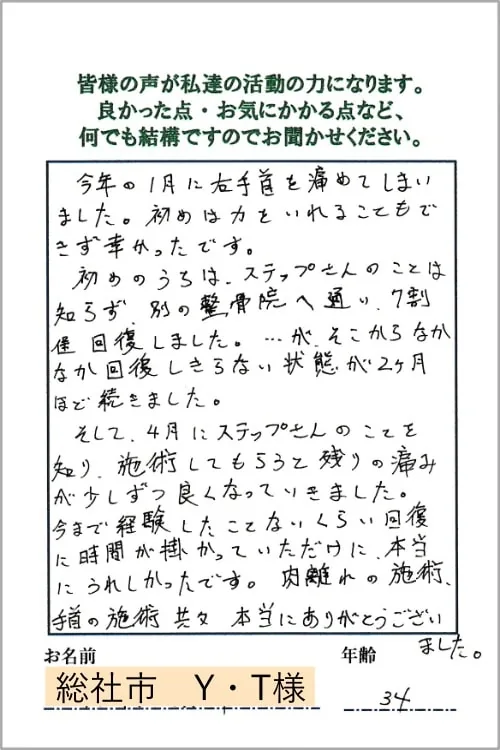 皆様の声が私達の活動の力になります。
良かった点・お気にかかる点など、
何でも結構ですのでお聞かせください。
今年の1月に右手首を痛めてしまい
ました。初めは力をいれることもで
きず辛かったです。
初めのうちは、ステップさんのことは
知らず、別の整骨院へ通い、7割
程回復しました。…が、そこからなか
なか回復しきらない状態が2ヶ月
ほど続きました。
そして、4月にステップさんのことを
知り、施術してもらうと残りの痛み
が少しずつ良くなっていきました。
今まで経験したことないくらい回復
に時間が掛かっていただけに、本当
にうれしかったです。肉離れの施術、
手首の施術共々 本当にありがとうござい
ました。
お名前 年齢
総社市 Y・T様 34